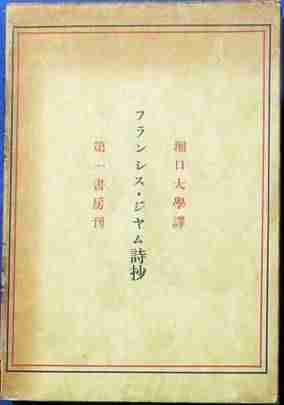 堀口大學譯
フランシス・ジャム詩抄
第一書房刊